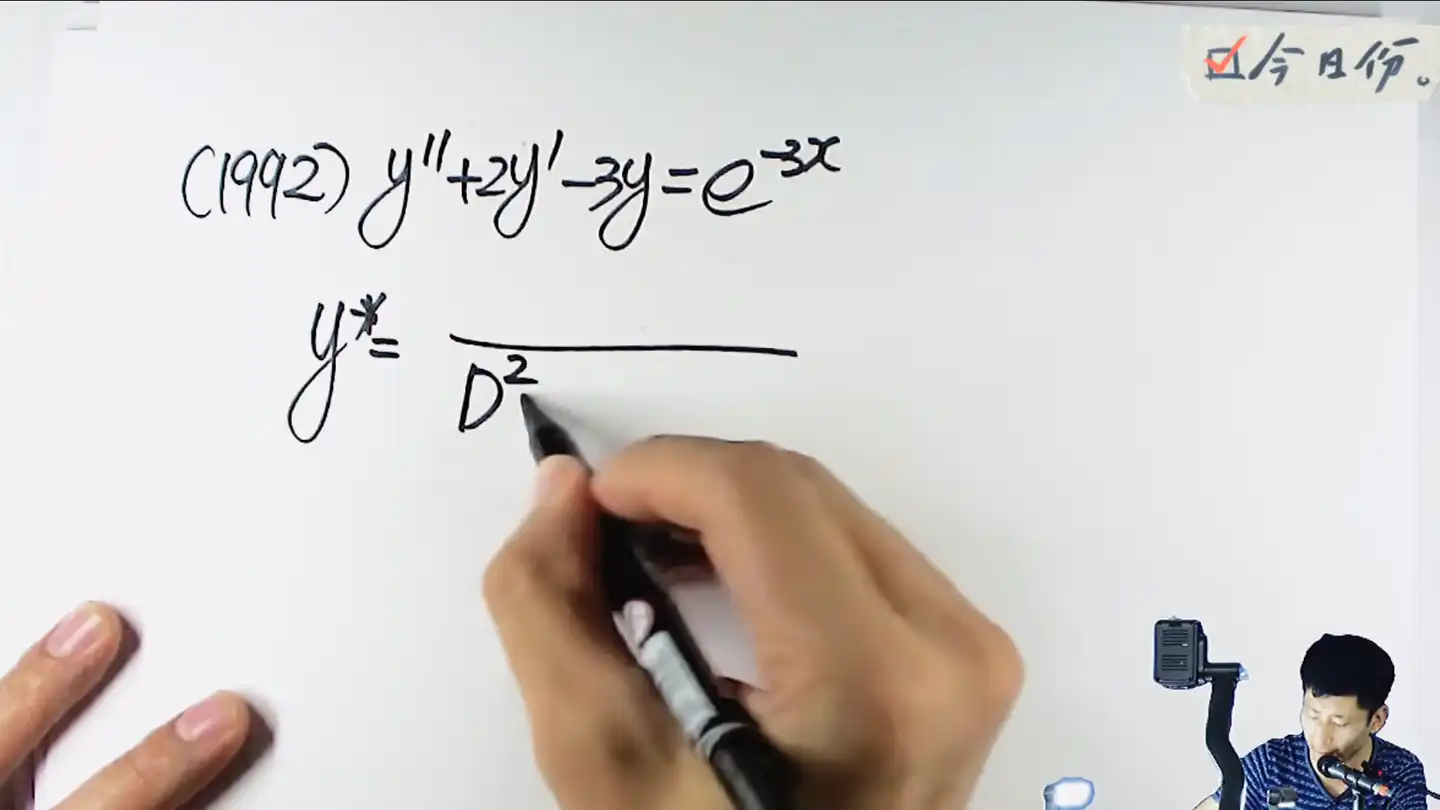 ☑今日份。
(1992) y''+2y'-3y=e^{-3x}
y*= \frac{}{D^2}